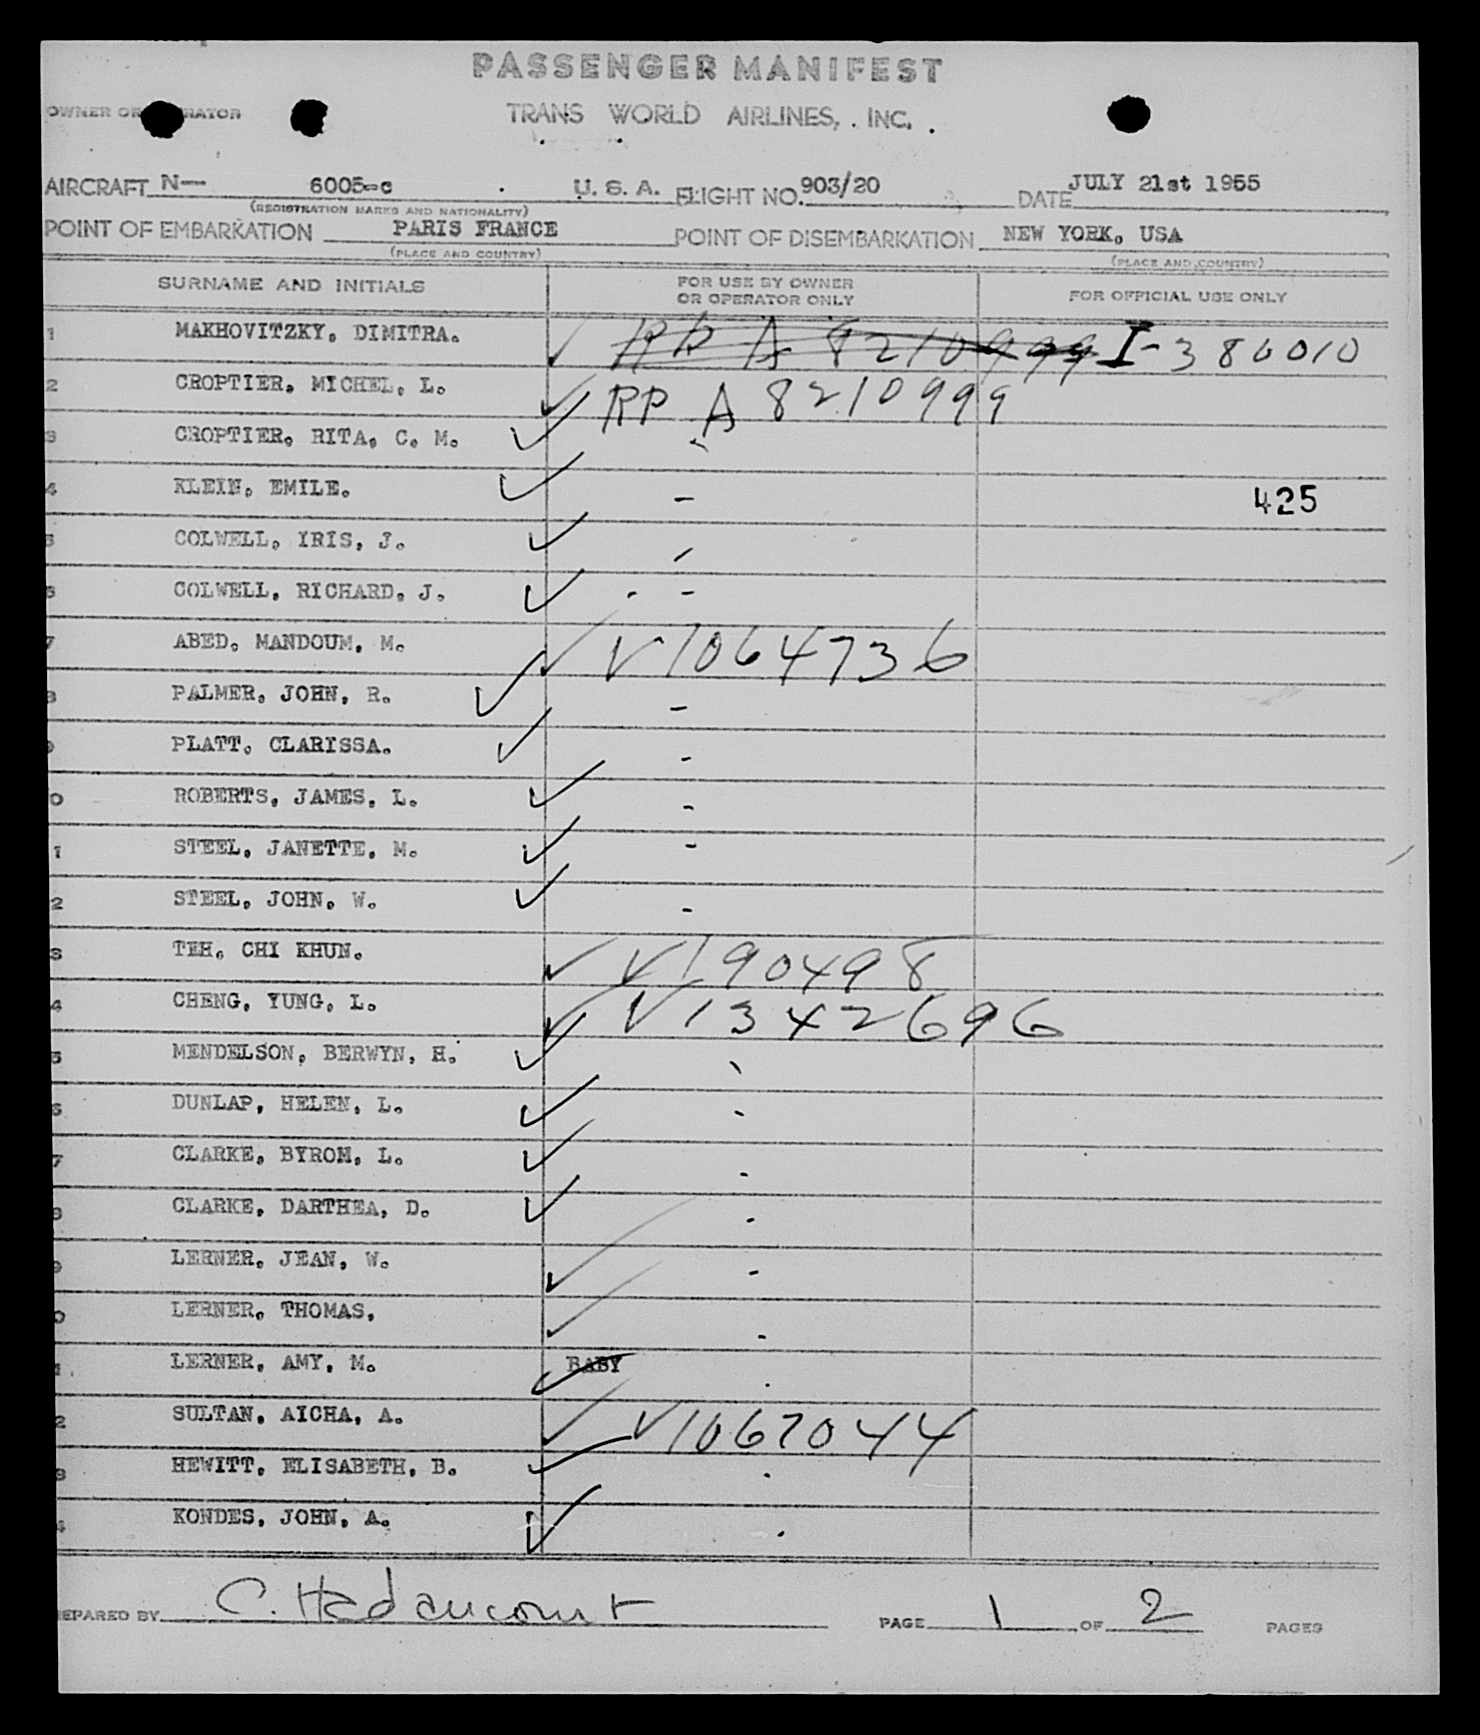 PASSENGER MANIFEST
OWNER OR OPERATOR
TRANS WORLD AIRLINES, INC.
AIRCRAFT N— 6005-c U. S. A. FLIGHT NO. 903/20 DATE JULY 21st 1955
(REGISTRATION MARKS AND NATIONALITY)
POINT OF EMBARKATION PARIS FRANCE POINT OF DISEMBARKATION NEW YORK, USA
(PLACE AND COUNTRY) (PLACE AND COUNTRY)
SURNAME AND INITIALS FOR USE BY OWNER OR OPERATOR ONLY FOR OFFICIAL USE ONLY
1 MAKHOVITZKY, DIMITRA. RP A 8210999 I-386010
2 CROPTIER, MICHEL, L. RP A 8210999
3 CROPTIER, RITA, C. M.
4 KLEIN, EMILE. - 425
5 COLWELL, IRIS, J.
6 COLWELL, RICHARD, J. - -
7 ABED, MANDOUM, M. V1064736
8 PALMER, JOHN, R. -
9 PLATT, CLARISSA. -
0 ROBERTS, JAMES, L. -
1 STEEL, JANETTE, M. -
2 STEEL, JOHN, W. -
3 TEH, CHI KHUN. V190498
4 CHENG, YUNG, L. V1342696
5 MENDELSON, BERWYN, H.
6 DUNLAP, HELEN, L. -
7 CLARKE, BYROM, L. -
8 CLARKE, DARTHEA, D. -
9 LERNER, JEAN, W. -
0 LERNER, THOMAS. -
1 LERNER, AMY, M. BABY
2 SULTAN, AICHA, A. V1067044
3 HEWITT, ELISABETH, B.
4 KONDES, JOHN, A.
PREPARED BY C. Hadancourt PAGE 1 OF 2 PAGES